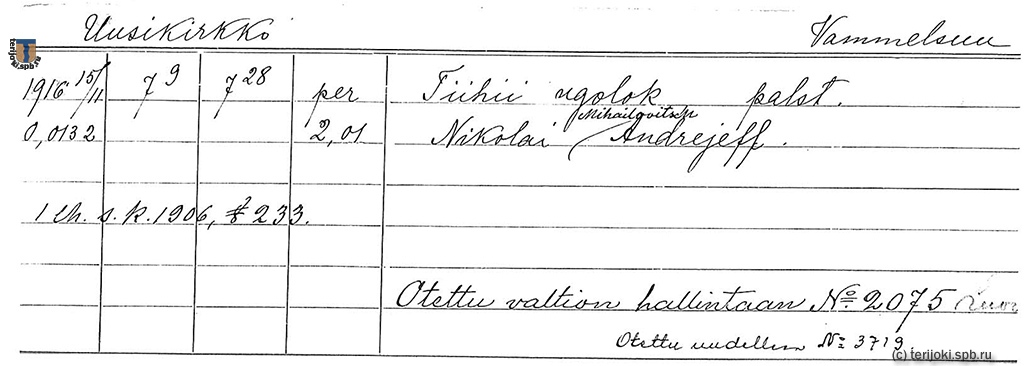 Uusikirkko Vammelsuu
terijoki.spb.ru
1916 15/11 7 9 7 28 per Tiihii ugolok palst.
Mihailovitsch
0,0132 2,01 Nikolai Andrejeff.
1 lh. s. k. 1906, § 233.
Otettu valtion hallintaan No 2075
Otettu uudelleen No 3719
(c) terijoki.spb.ru